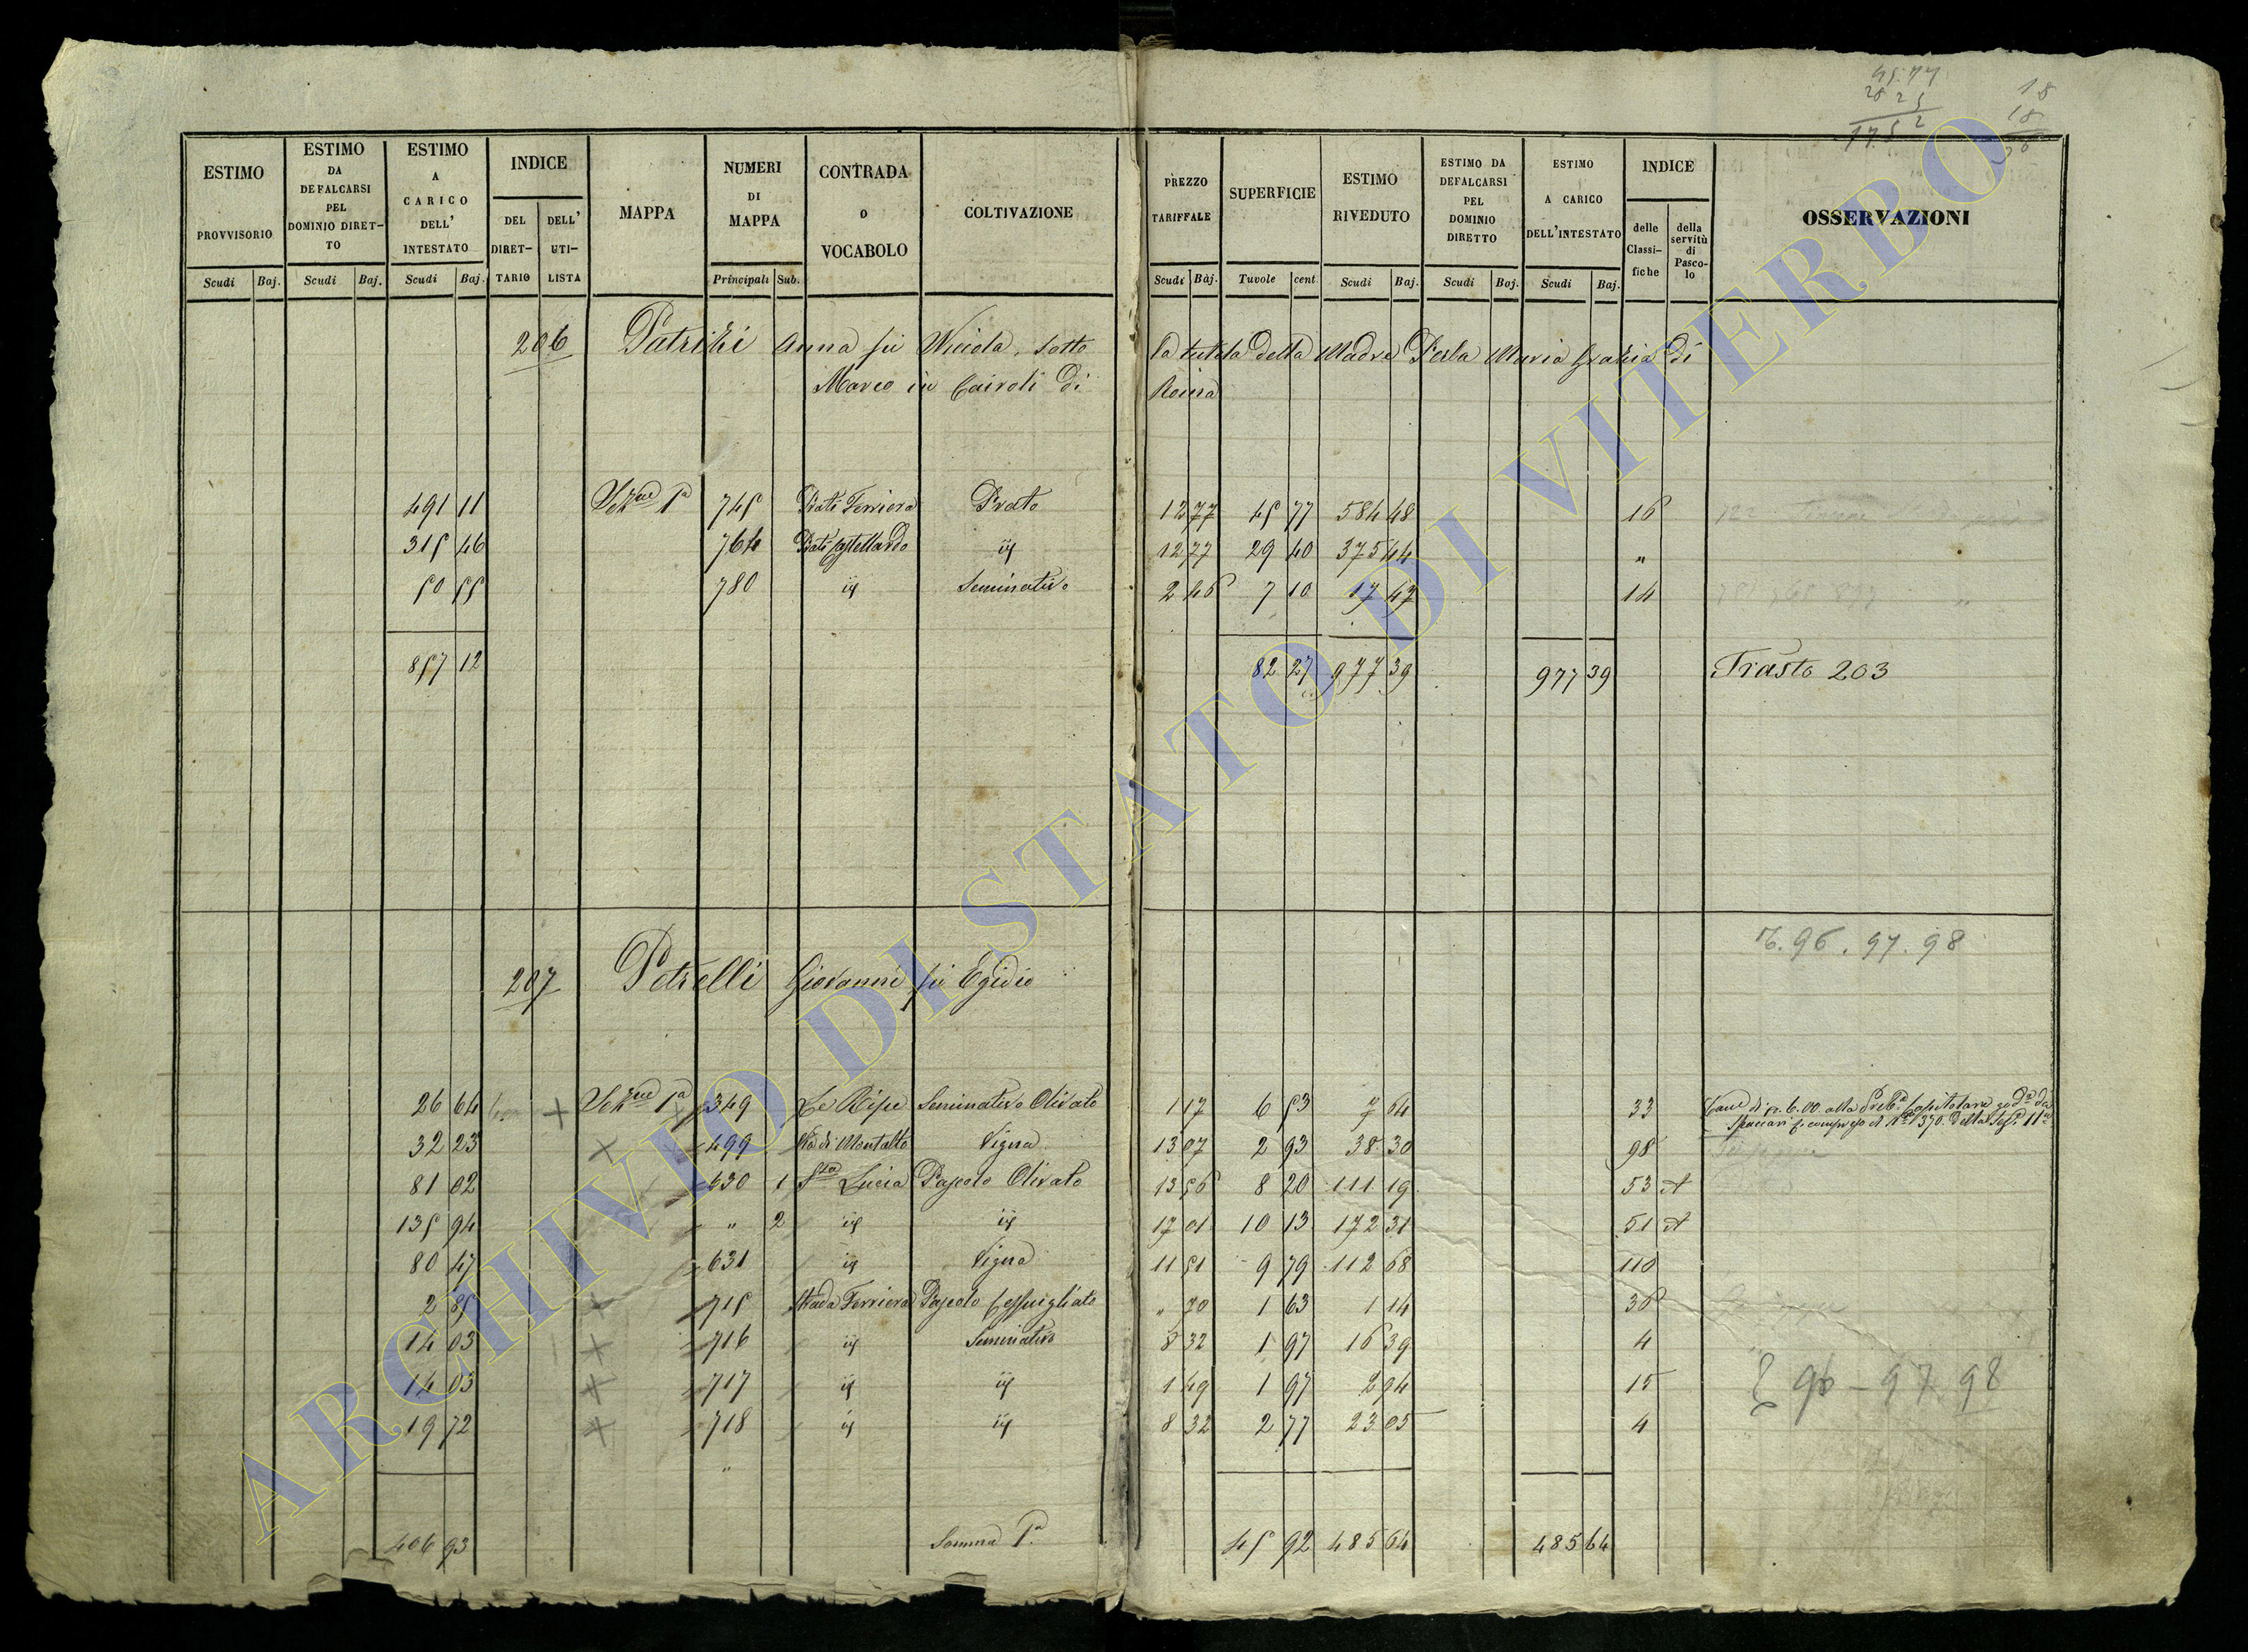 45.77
28 25
17.52
18
18
36
ESTIMO PROVVISORIO
ESTIMO DA DEFALCARSI PEL DOMINIO DIRET-TO
ESTIMO A CARICO DELL' INTESTATO
INDICE
DEL DIRET-TARIO
DELL' UTI-LISTA
MAPPA
NUMERI DI MAPPA
CONTRADA O VOCABOLO
COLTIVAZIONE
PREZZO TARIFFALE
SUPERFICIE
ESTIMO RIVEDUTO
ESTIMO DA DEFALCARSI PEL DOMINIO DIRETTO
ESTIMO A CARICO DELL'INTESTATO
INDICE
delle Classi-fiche
della servitù di Pasco-lo
OSSERVAZIONI
Scudi Baj. Scudi Baj. Scudi Baj. Principali Sub. Scudi Baj. Tavole cent. Scudi Baj. Scudi Baj. Scudi Baj.
206 Patrizi Anna fu Nicola, sotto la tutela della Madre Perla Maria Grazia di
Marco in Cairoli di Roma
491 11 Sezne Pa 745 Prati Ferriera Prato 12 77 45 77 584 48 16
315 46 764 Prati Castellardo iḍ 12 77 29 40 375 44 "
50 55 780 iḍ Seminativo 2 46 7 10 17 47 14
857 12 82 27 977 39 977 39 Trasto 203
7. 96. 97. 98
207 Petrelli Giovanni fu Egidio
26 64 Sezne Pa 349 Le Ripe Seminativo Olivato 1 17 6 53 7 64 33
32 23 499 Via di Montalto Vigna 13 07 2 93 38 30 98
81 02 630 1 Sta Lucia Pascolo Olivato 13 56 8 20 111 19 53 A
135 94 " 2 iḍ iḍ 17 01 10 13 172 31 51 A
80 47 631 iḍ Vigna 11 51 9 79 112 68 110
2 85 715 Strada Ferriera Pascolo Cespugliato " 70 1 63 1 14 36
14 03 716 iḍ Seminativo 8 32 1 97 16 39 4
14 03 717 iḍ iḍ 1 49 1 97 2 94 15
19 72 718 iḍ iḍ 8 32 2 77 23 05 4
96 - 97. 98
406 93 Somma Pa 45 92 485 64 485 64
ARCHIVIO DI STATO DI VITERBO